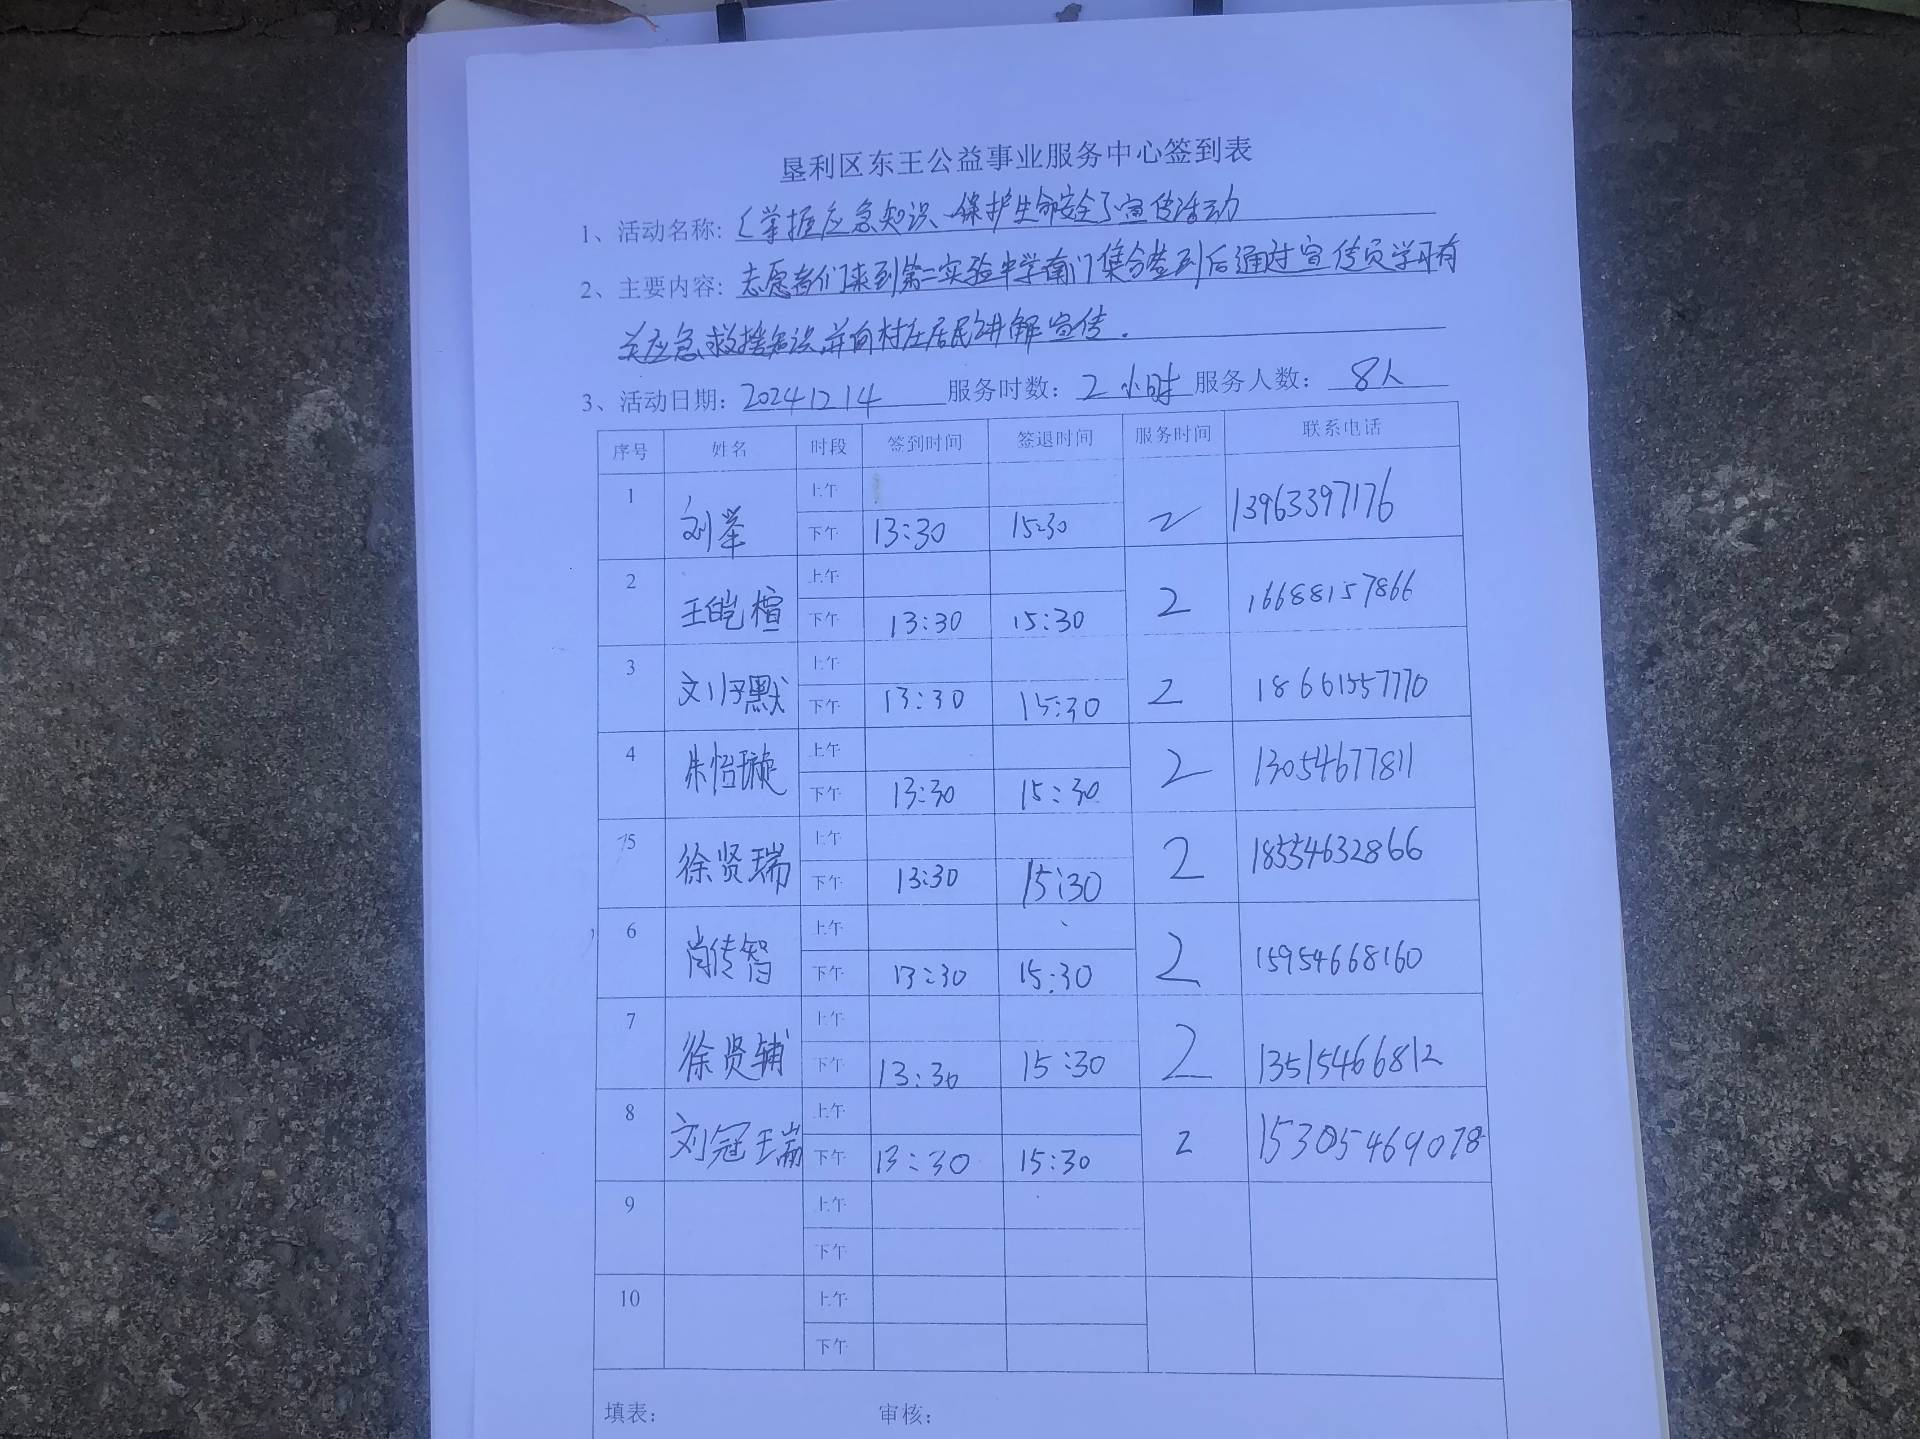 垦利区东王公益事业服务中心签到表
1、活动名称: 《掌握应急知识、保护生命安全》宣传活动
2、主要内容: 志愿者们来到第二实验中学南门集合签到后通过宣传员学习有
关应急救援知识,并向村庄居民讲解宣传.
3、活动日期: 20241214 服务时数: 2小时 服务人数: 8人
序号 姓名 时段 签到时间 签退时间 服务时间 联系电话
1 刘举 上午
下午 13:30 15:30 2 13963397176
2 王皑楦 上午
下午 13:30 15:30 2 16688157866
3 刘子默 上午
下午 13:30 15:30 2 18661557770
4 朱怡璇 上午
下午 13:30 15:30 2 13054677811
5 徐贤瑞 上午
下午 13:30 15:30 2 18554632866
6 肖传智 上午
下午 13:30 15:30 2 15954668160
7 徐贤辅 上午
下午 13:30 15:30 2 13515466812
8 刘冠瑞 上午
下午 13:30 15:30 2 15305469078
9 上午
下午
10 上午
下午
填表: 审核: